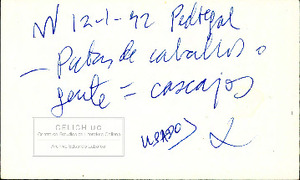 12-1-92 Pedregal
— Patas de caballos o
gente = cascajos
USADO
CELICH UC
Centro de Estudios de Literatura Chilena